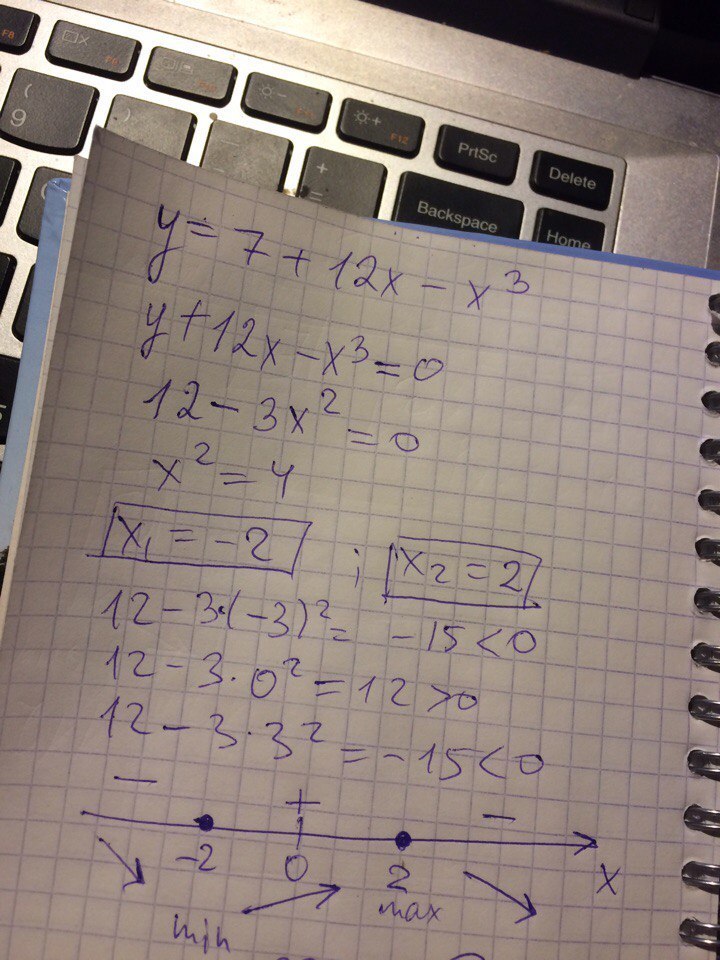 F8
F12
( 9
)
+ =
PrtSc
Delete
Backspace
Home
y = 7 + 12x - x³
y + 12x - x³ = 0
12 - 3x² = 0
x² = 4
x₁ = -2 ; x₂ = 2
12 - 3·(-3)² = -15 < 0
12 - 3·0² = 12 > 0
12 - 3·3² = -15 < 0
— + —
-2 0 2 x
min max